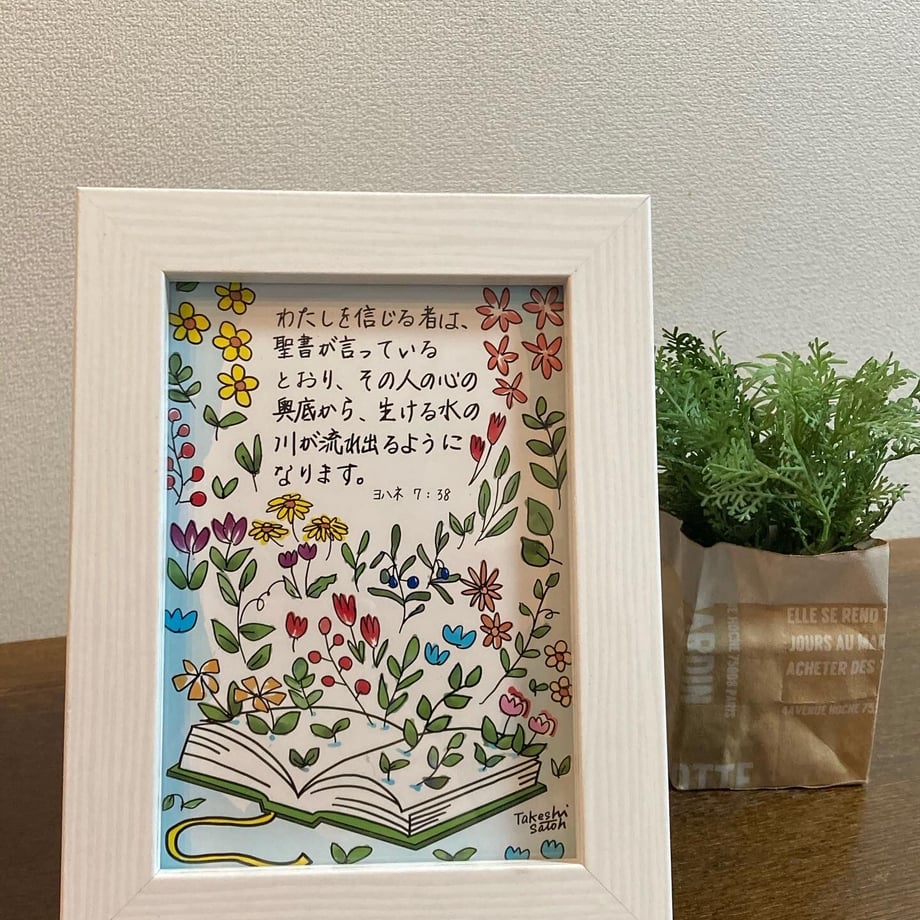 わたしを信じる者は、
聖書が言っている
とおり、その人の心の
奥底から、生ける水の
川が流れ出るように
なります。
ヨハネ 7:38
Takeshi
Satoh
ELLE SE REND
JOURS AU
ACHETER DES
AVENUE HOCHE 75